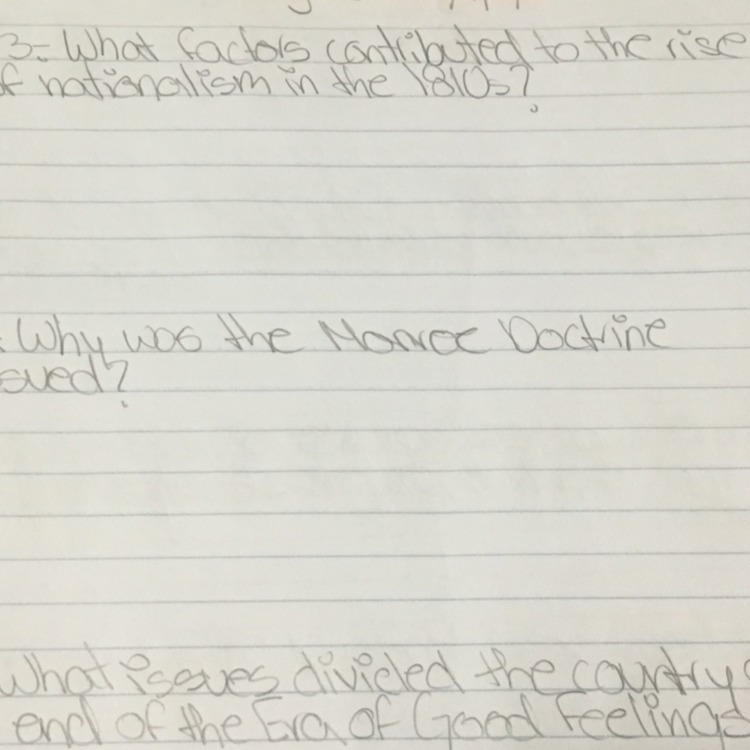 3- What factors contributed to the rise
f nationalism in the 1810s?
. Why was the Monroe Doctrine
sued?
What issues divided the country
end of the Era of Good Feelings